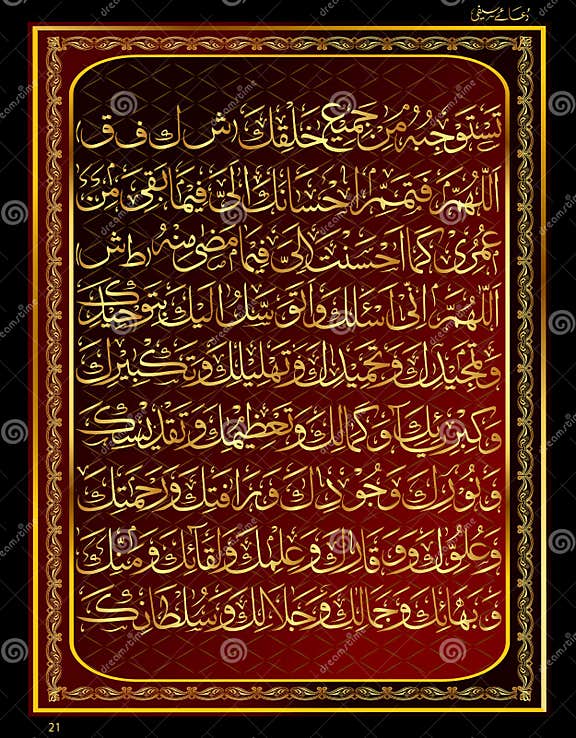 دعائے سیفی
تَسْتَوْجِبُهٗ مِنْ جَمِیْعِ خَلْقِكَ (ش ك ف ق)
اَللّٰهُمَّ فَتَمِّمْ اِحْسَانَكَ اِلَیَّ فِیْمَا بَقِیَ مِنْ
عُمُرِیْ كَمَا اَحْسَنْتَ اِلَیَّ فِیْمَا مَضٰی مِنْهُ (ط ش)
اَللّٰهُمَّ اِنِّیْ اَسْئَلُكَ وَاَتَوَسَّلُ اِلَیْكَ بِتَوْحِیْدِكَ
وَتَمْجِیْدِكَ وَتَحْمِیْدِكَ وَتَهْلِیْلِكَ وَتَكْبِیْرِكَ
وَكِبْرِیَآئِكَ وَكَمَالِكَ وَتَعْظِیْمِكَ وَتَقْدِیْسِكَ
وَنُوْرِكَ وَجُوْدِكَ وَرَافَتِكَ وَرَحْمَتِكَ
وَعُلُوِّكَ وَوَقَارِكَ وَعِلْمِكَ وَلِقَآئِكَ وَمَنِّكَ
وَبَهَائِكَ وَجَمَالِكَ وَجَلَالِكَ وَسُلْطَانِكَ
21
dreamstime